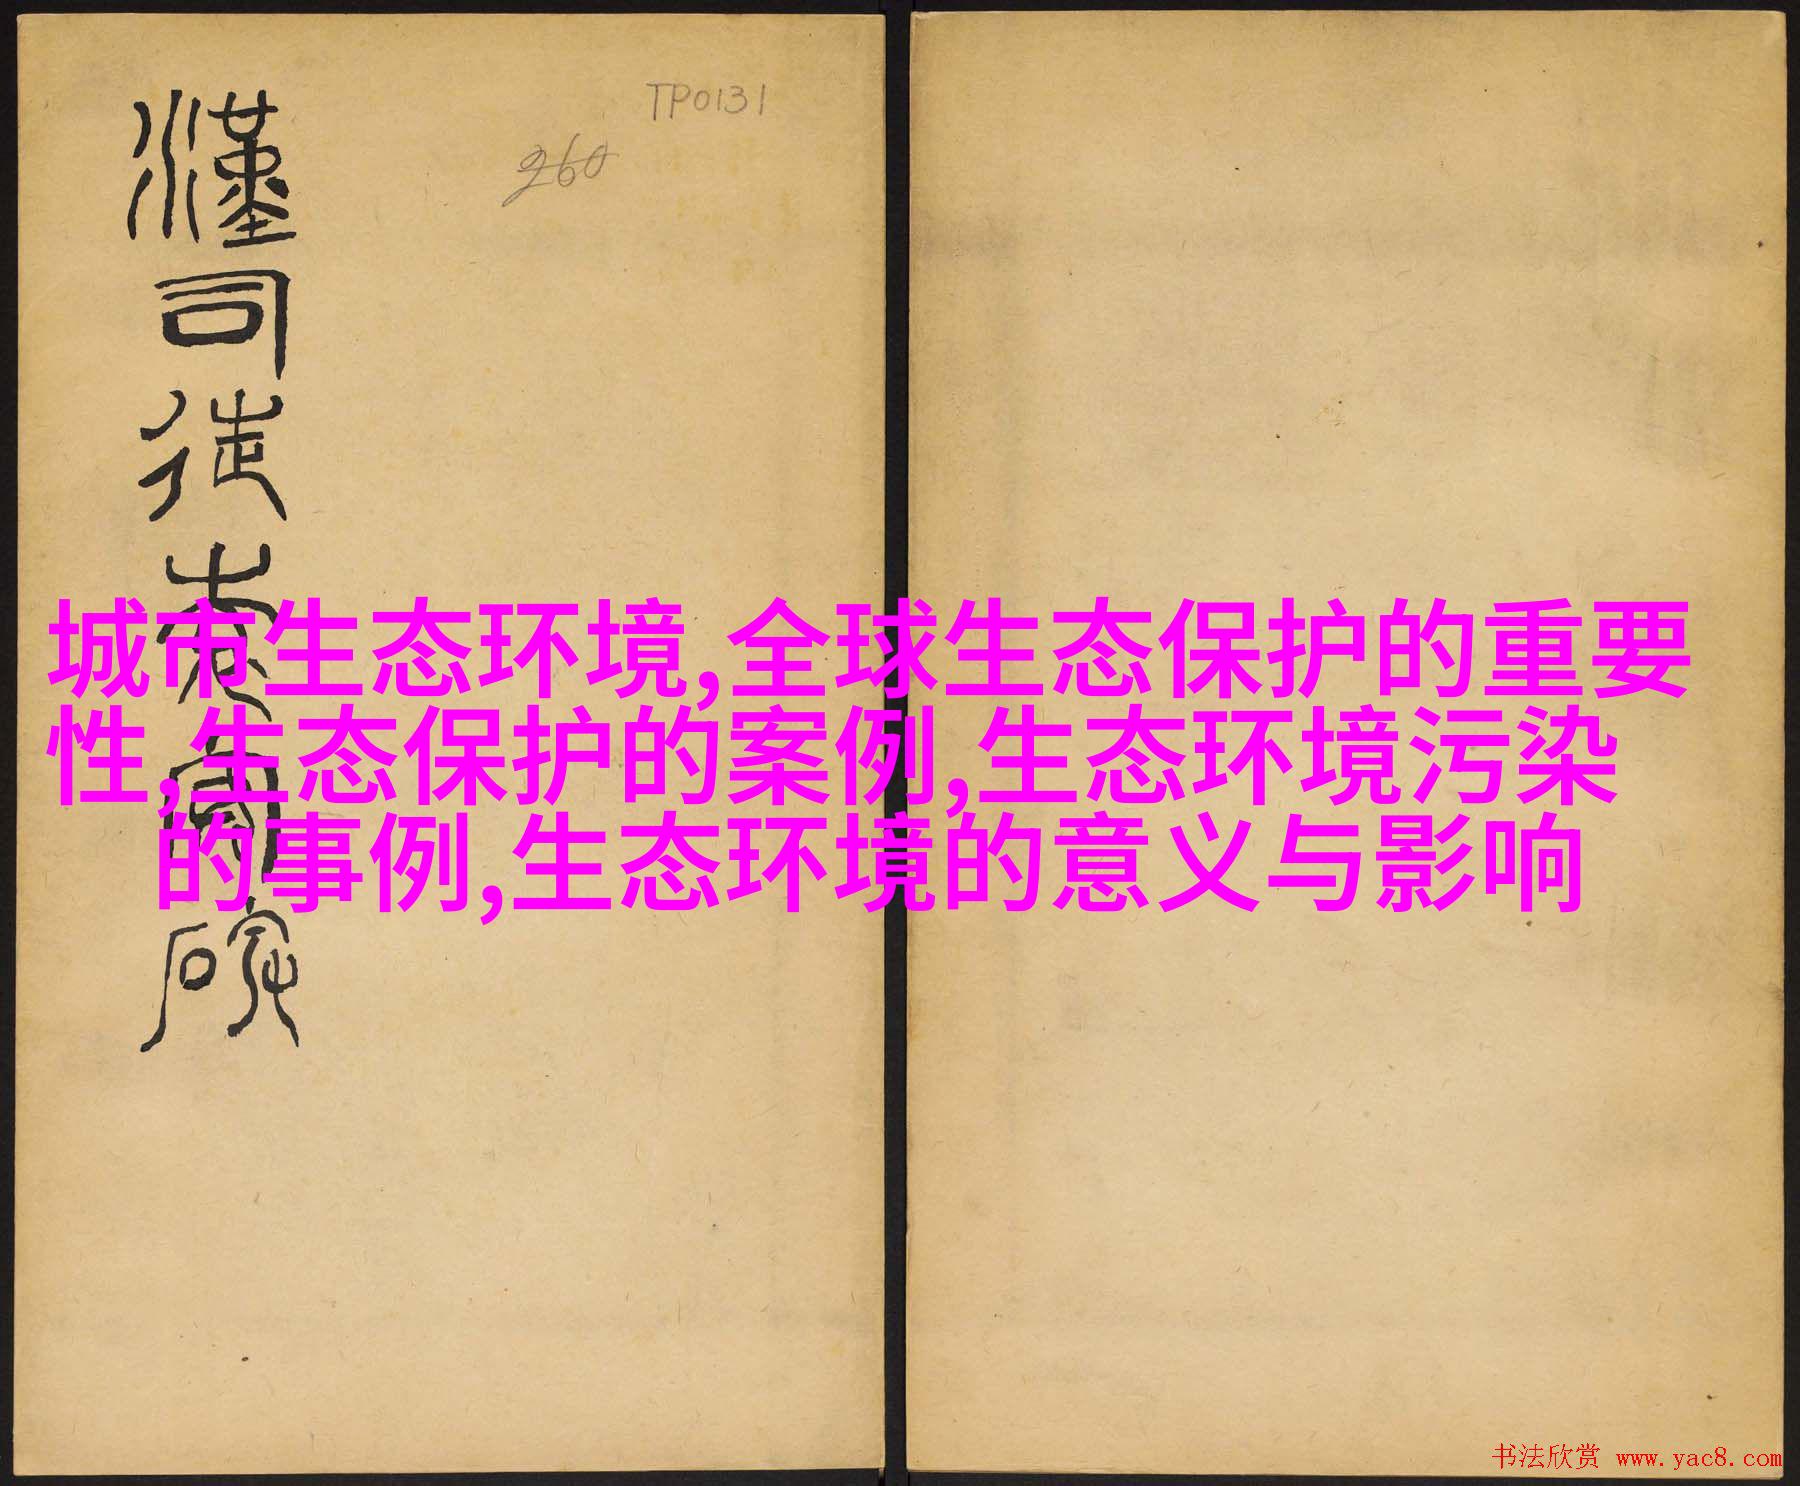 漢司徒袁敞碑
TP0131
260
城市生态环境,全球生态保护的重要
性,生态保护的案例,生态环境污染
的事例,生态环境的意义与影响
书法欣赏 www.yac8.com